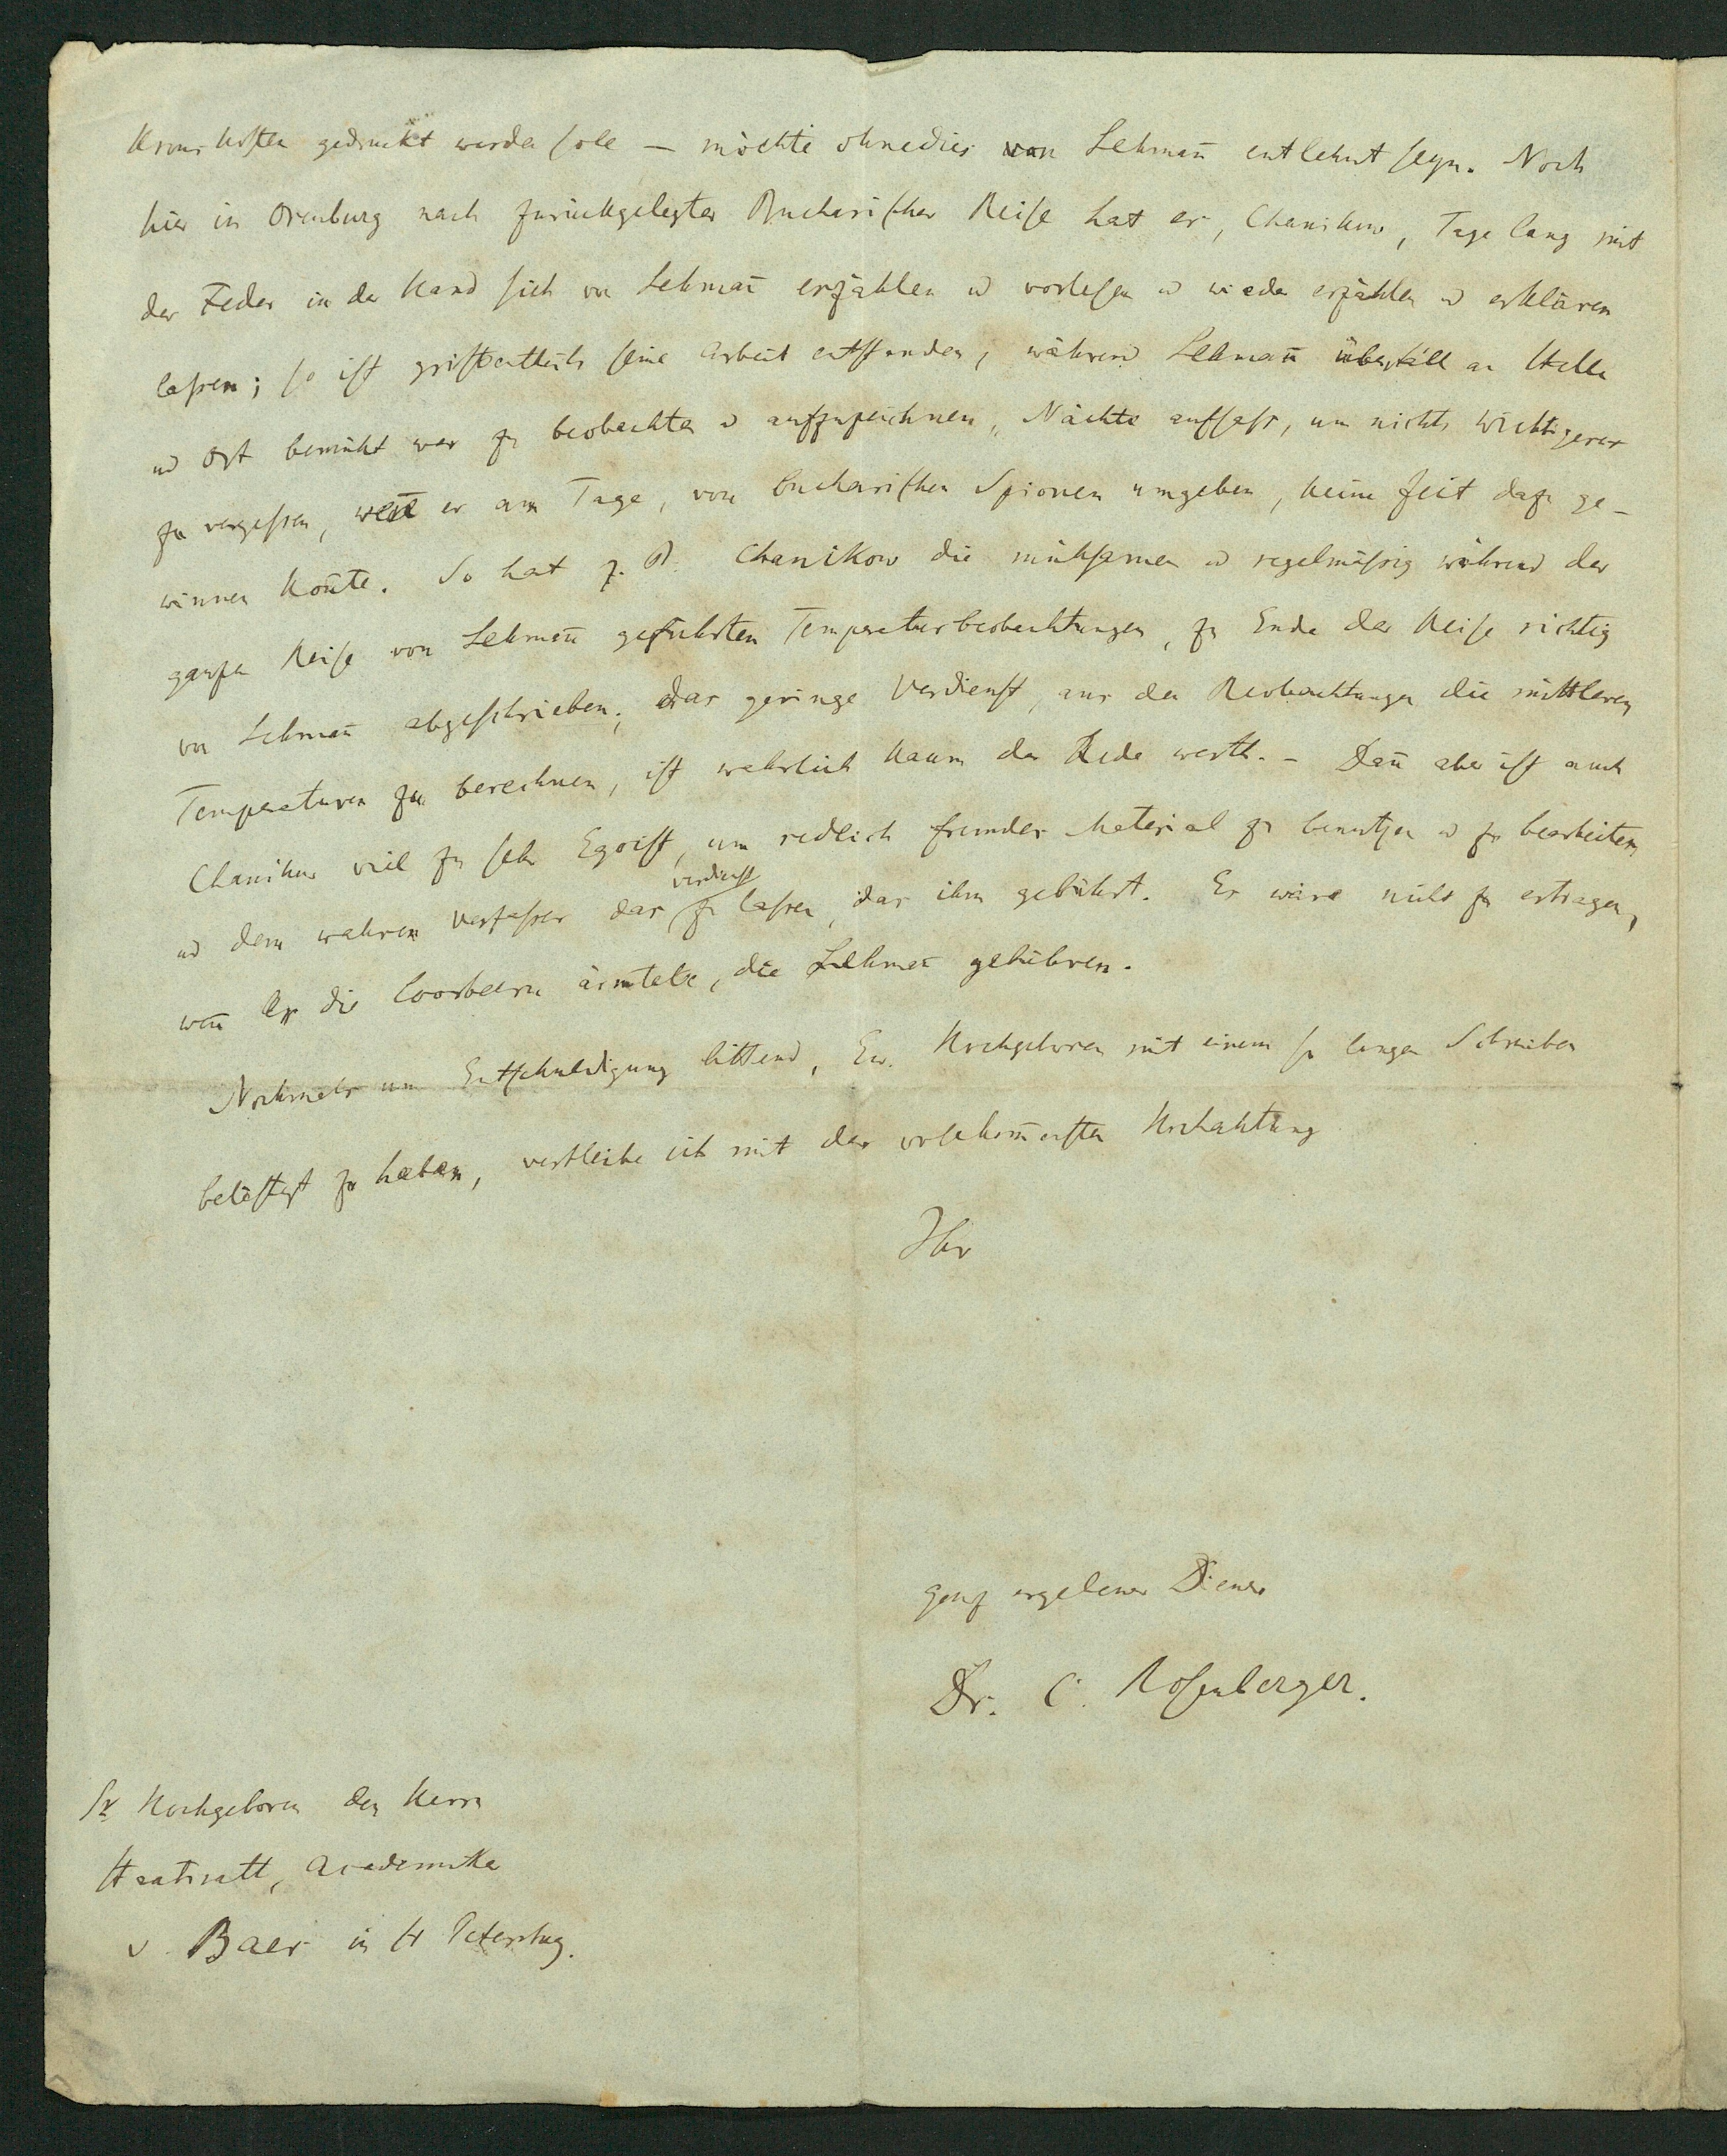 Krons Kosten gedruckt werden soll — möchte ohnedies von Lehmañ entlehnt seyn. Noch
hier in Orenburg nach zurückgelegter Bucharischer Reise hat er, Chanikow, Tage lang mit
der Feder in der Hand sich von Lehmañ erzählen u vorlesen u wieder erzählen u erklären
lassen; so ist größtentheils seine Arbeit entstanden, während Lehmañ überall an Stelle
und Ort bemüht war zu beobachten u aufzuzeichnen, Nächte aufsaß, um nichts Wichtigeres
zu vergessen, weil er am Tage, von bucharischen Spionen umgeben, keine Zeit dazu ge-
winnen koñte. So hat z. B. Chanikow die mühsamen u regelmässig während der
ganzen Reise von Lehmañ geführten Temperaturbeobachtungen, zu Ende der Reise richtig
von Lehmañ abgeschrieben; das geringe Verdienst, aus den Beobachtungen die mittleren
Temperaturen zu berechnen, ist wahrlich kaum der Rede werth. – Dañ aber ist auch
Chanikow viel zu sehr Egoist, um redlich fremdes Material zu benutzen u zu bearbeiten,
und dem wahren Verfasser das Verdienst zu lassen, das ihm gebührt. Es wäre nicht zu ertragen,
weñ er die Loorbeern ärntete, die Lehmañ gebühren.
Nochmals um Entschuldigung bittend, Ew. Hochgeboren mit einem so langen Schreiben
belästigt zu haben, verbleibe ich mit der vollkom̄ensten Hochachtung
Ihr
ganz ergebener Diener
Dr. C. Rosenberger.
Sr Hochgeboren den Herrn
Staatsrath, Academiker
v. Baer in St Petersburg.